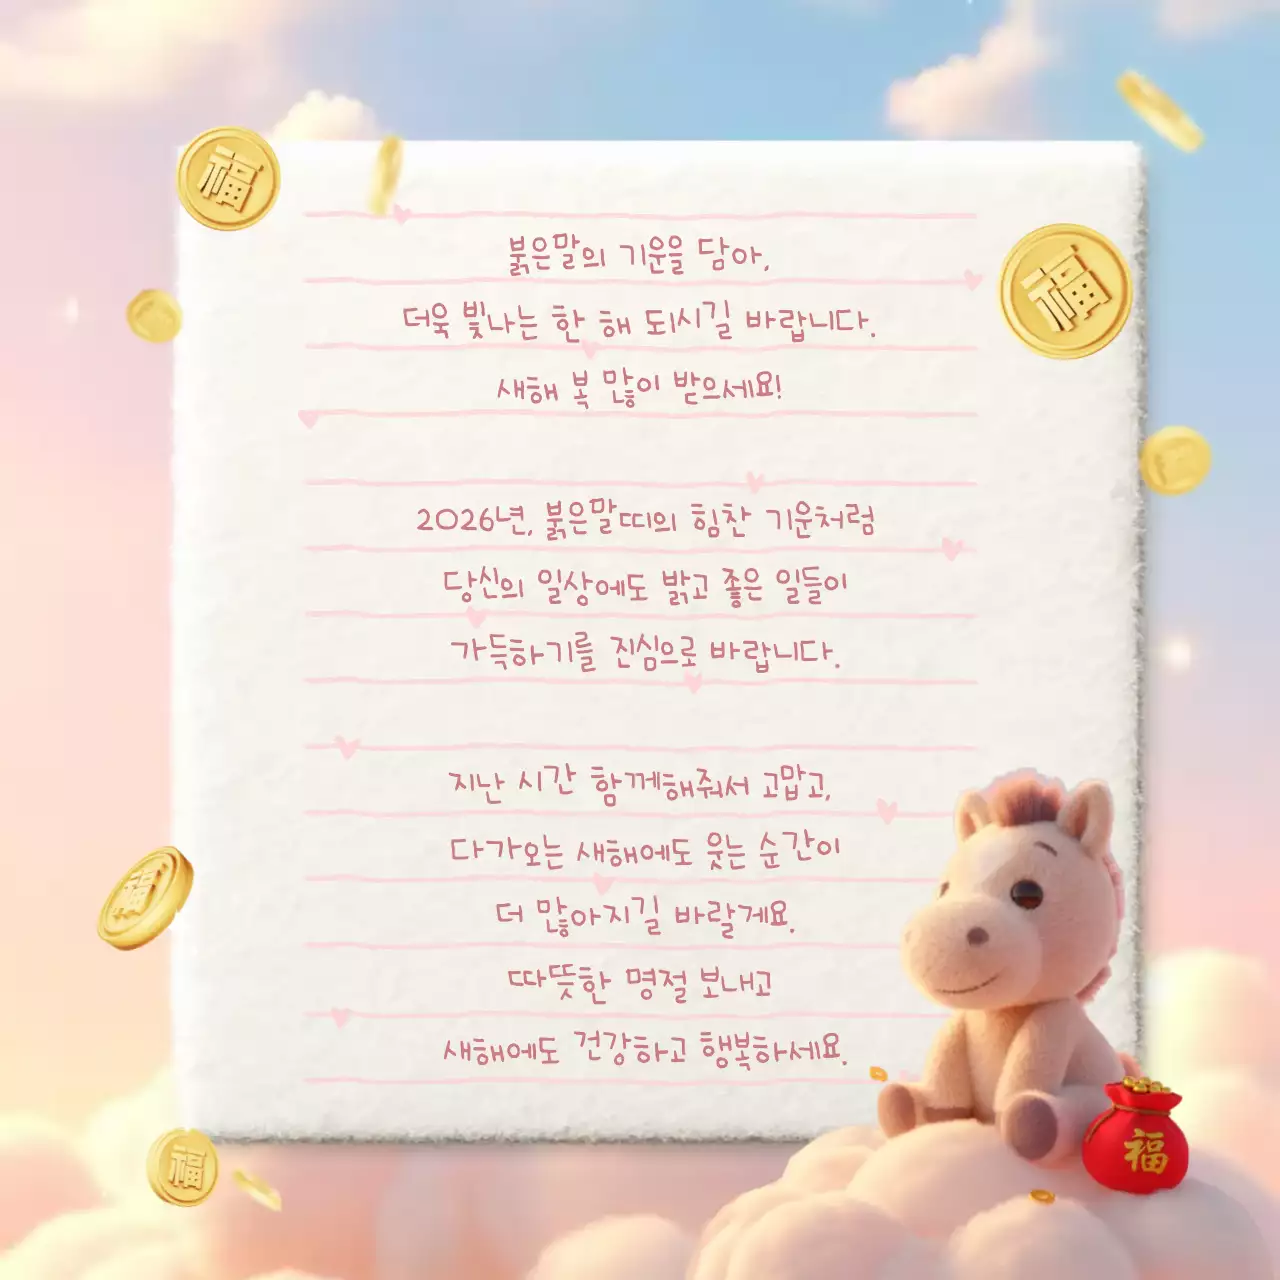 福
福
붉은말의 기운을 담아,
더욱 빛나는 한 해 되시길 바랍니다.
새해 복 많이 받으세요!
2026년, 붉은말띠의 힘찬 기운처럼
당신의 일상에도 밝고 좋은 일들이
가득하기를 진심으로 바랍니다.
지난 시간 함께해줘서 고맙고,
다가오는 새해에도 웃는 순간이
더 많아지길 바랄게요.
따뜻한 명절 보내고
새해에도 건강하고 행복하세요.
福
福
福